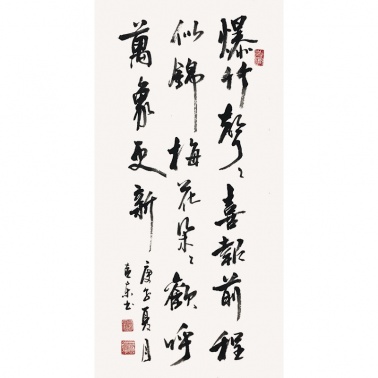 爆竹聲々喜報前程
似錦梅花朵々歡呼
萬象更新
庚子夏月
书